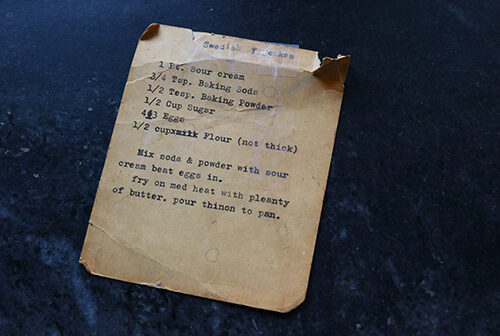 Swedish Pancakes
1 Pt. Sour cream
3/4 Tsp. Baking Soda
1/2 Tesp. Baking Powder
1/2 Cup Sugar
3 Eggs
1/2 cupxmilk Flour (not thick)
Mix soda & powder with sour
cream beat eggs in.
fry on med heat with pleanty
of butter. pour thinon to pan.